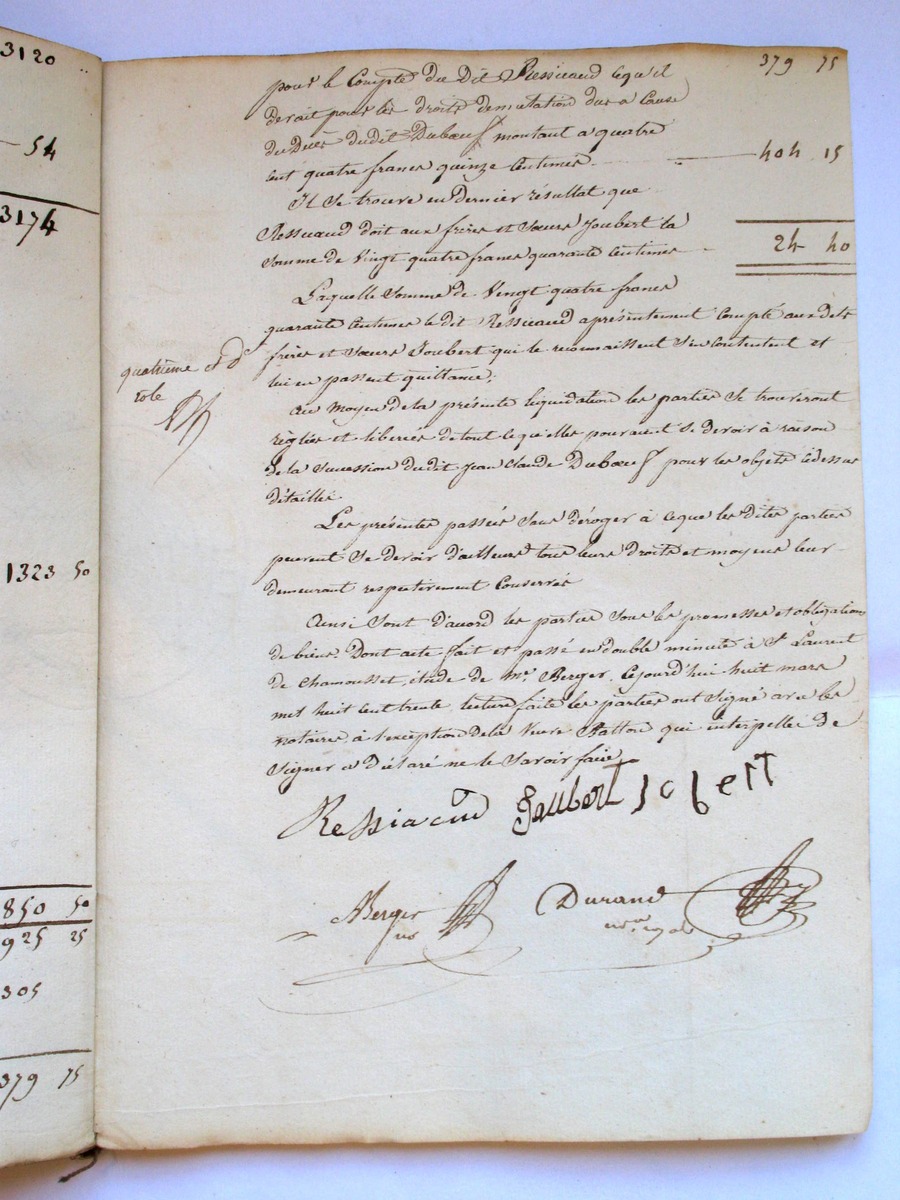 3120
54
3174
1323 50
850 50
925 25
305
379 75
379 75
pour le Compte du Dit Ressicaud ce qu'il
devait pour les droits de mutation dus a Cause
du Décès dudit Duboeuf montant a quatre
cent quatre francs quinze Centimes 404 15
Il se trouve en Dernier résultat que
Ressicaud doit aux frères et Sœurs Joubert la
Somme de Vingt quatre francs quarante Centimes 24 40
Laquelle Somme de Vingt quatre francs
quarante Centimes le dit Ressicaud a présentement Compté aux dits
frères et Sœurs Joubert qui le reconnaissent s'en Contentent et
lui en passent quittance.
quatrième et dr
role
Au moyen de la présente liquidation les parties Se trouveront
règlées et libérées de tout ce qu'elles pouvaient Se devoir à raison
de la Succession dudit Jean Claude Duboeuf pour les objets cidessus
détaillés.
Les présentes passées Sans déroger à ceque les dites parties
peuvent Se devoir d'ailleurs tous leurs droits et moyens leur
demeurant respectivement Conservés
Ainsi Sont d'accord les parties Sous les promesses et obligations
de biens. Dont acte fait et passé en double minute à St. Laurent
de Chamousset, étude de Me. Berger, Cejourd'hui huit mars
mil huit cent trente, lecture faite les parties ont Signé avec les
notaires, à l'exception de la Veuve qui interpellée de
Signer a Déclaré ne le Savoir faire
Ressiacud Jaubert
Berger
nre
Durand